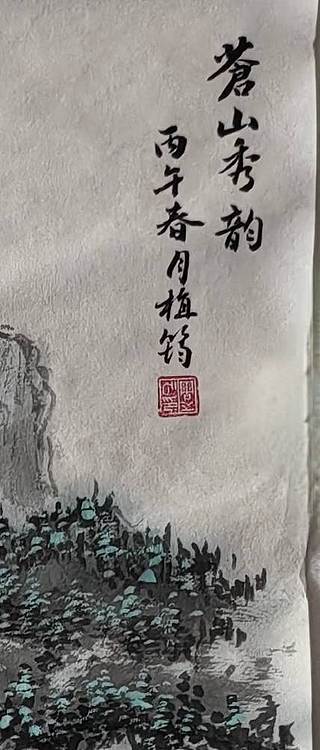 蒼山秀韵
丙午春月梅筠